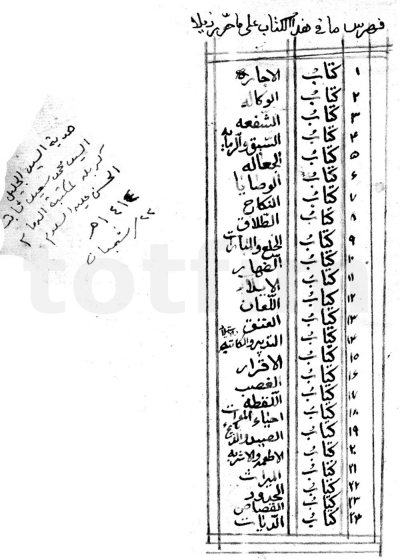 فهرس ما في هذا الكتاب على ما حرر ذيلا
١ كتاب الاجاره
٢ كتاب الوكاله
٣ كتاب الشفعه
٤ كتاب السبق والرمايه
٥ كتاب الجعاله
٦ كتاب الوصايا
٧ كتاب النكاح
٨ كتاب الطلاق
٩ كتاب الخلع والمبارات
١٠ كتاب الظهار
١١ كتاب الايلاء
١٢ كتاب اللعان
١٣ كتاب العتق
١٤ كتاب التدبير والمكاتبه
١٥ كتاب الاقرار
١٦ كتاب الغصب
١٧ كتاب اللقطه
١٨ كتاب احياء الموات
١٩ كتاب الصيد والذبائح
٢٠ كتاب الاطعمه والاشربه
٢١ كتاب الميراث
٢٢ كتاب الحدود
٢٣ كتاب القصاص
٢٤ كتاب الديات
هدية السيد الجليل
السيد محمد حسين
كربلا لمكتبة الامام
الحسن عليه السلام
٢٣ / شعبان
١٤١٤ هـ